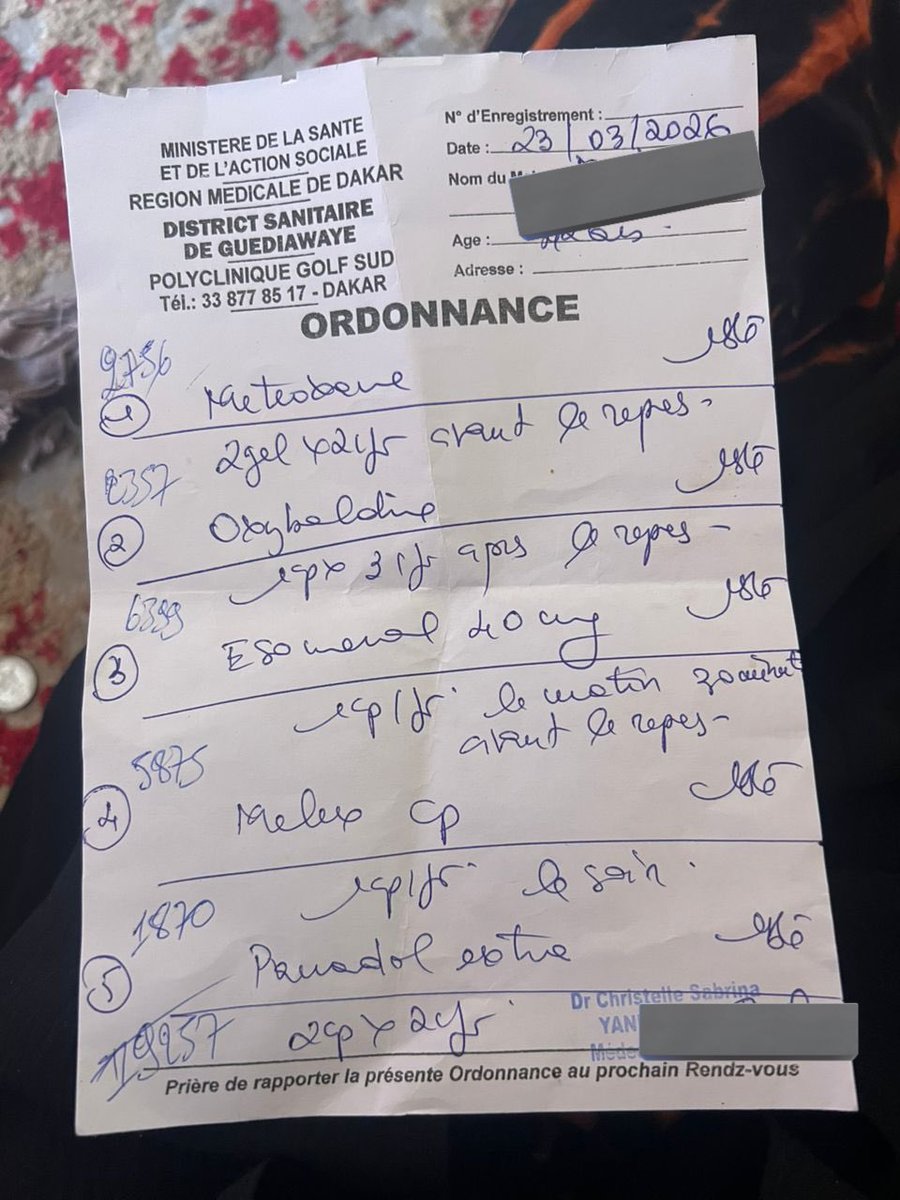 MINISTERE DE LA SANTE
ET DE L'ACTION SOCIALE
REGION MEDICALE DE DAKAR
DISTRICT SANITAIRE
DE GUEDIAWAYE
POLYCLINIQUE GOLF SUD
Tél.: 33 877 85 17 - DAKAR
N° d'Enregistrement :
Date : 23/03/2026
Nom du
Age :
Adresse :
ORDONNANCE
2756
1 Meteoxane
2gel x 2/jr avant le repas-
2357
2 Oxybeldine
1cp x 3/jr aprs le repas-
6399
3 Esomeral 40 mg
1cp/jr le matin 30 minut
avant le repas-
5875
4 cp
1cp/jr le soir.
1870
5 Panadol extra
2cp x 2/jr
19257
Dr Christelle Sabrina
YAN
Méde
Prière de rapporter la présente Ordonnance au prochain Rendz-vous